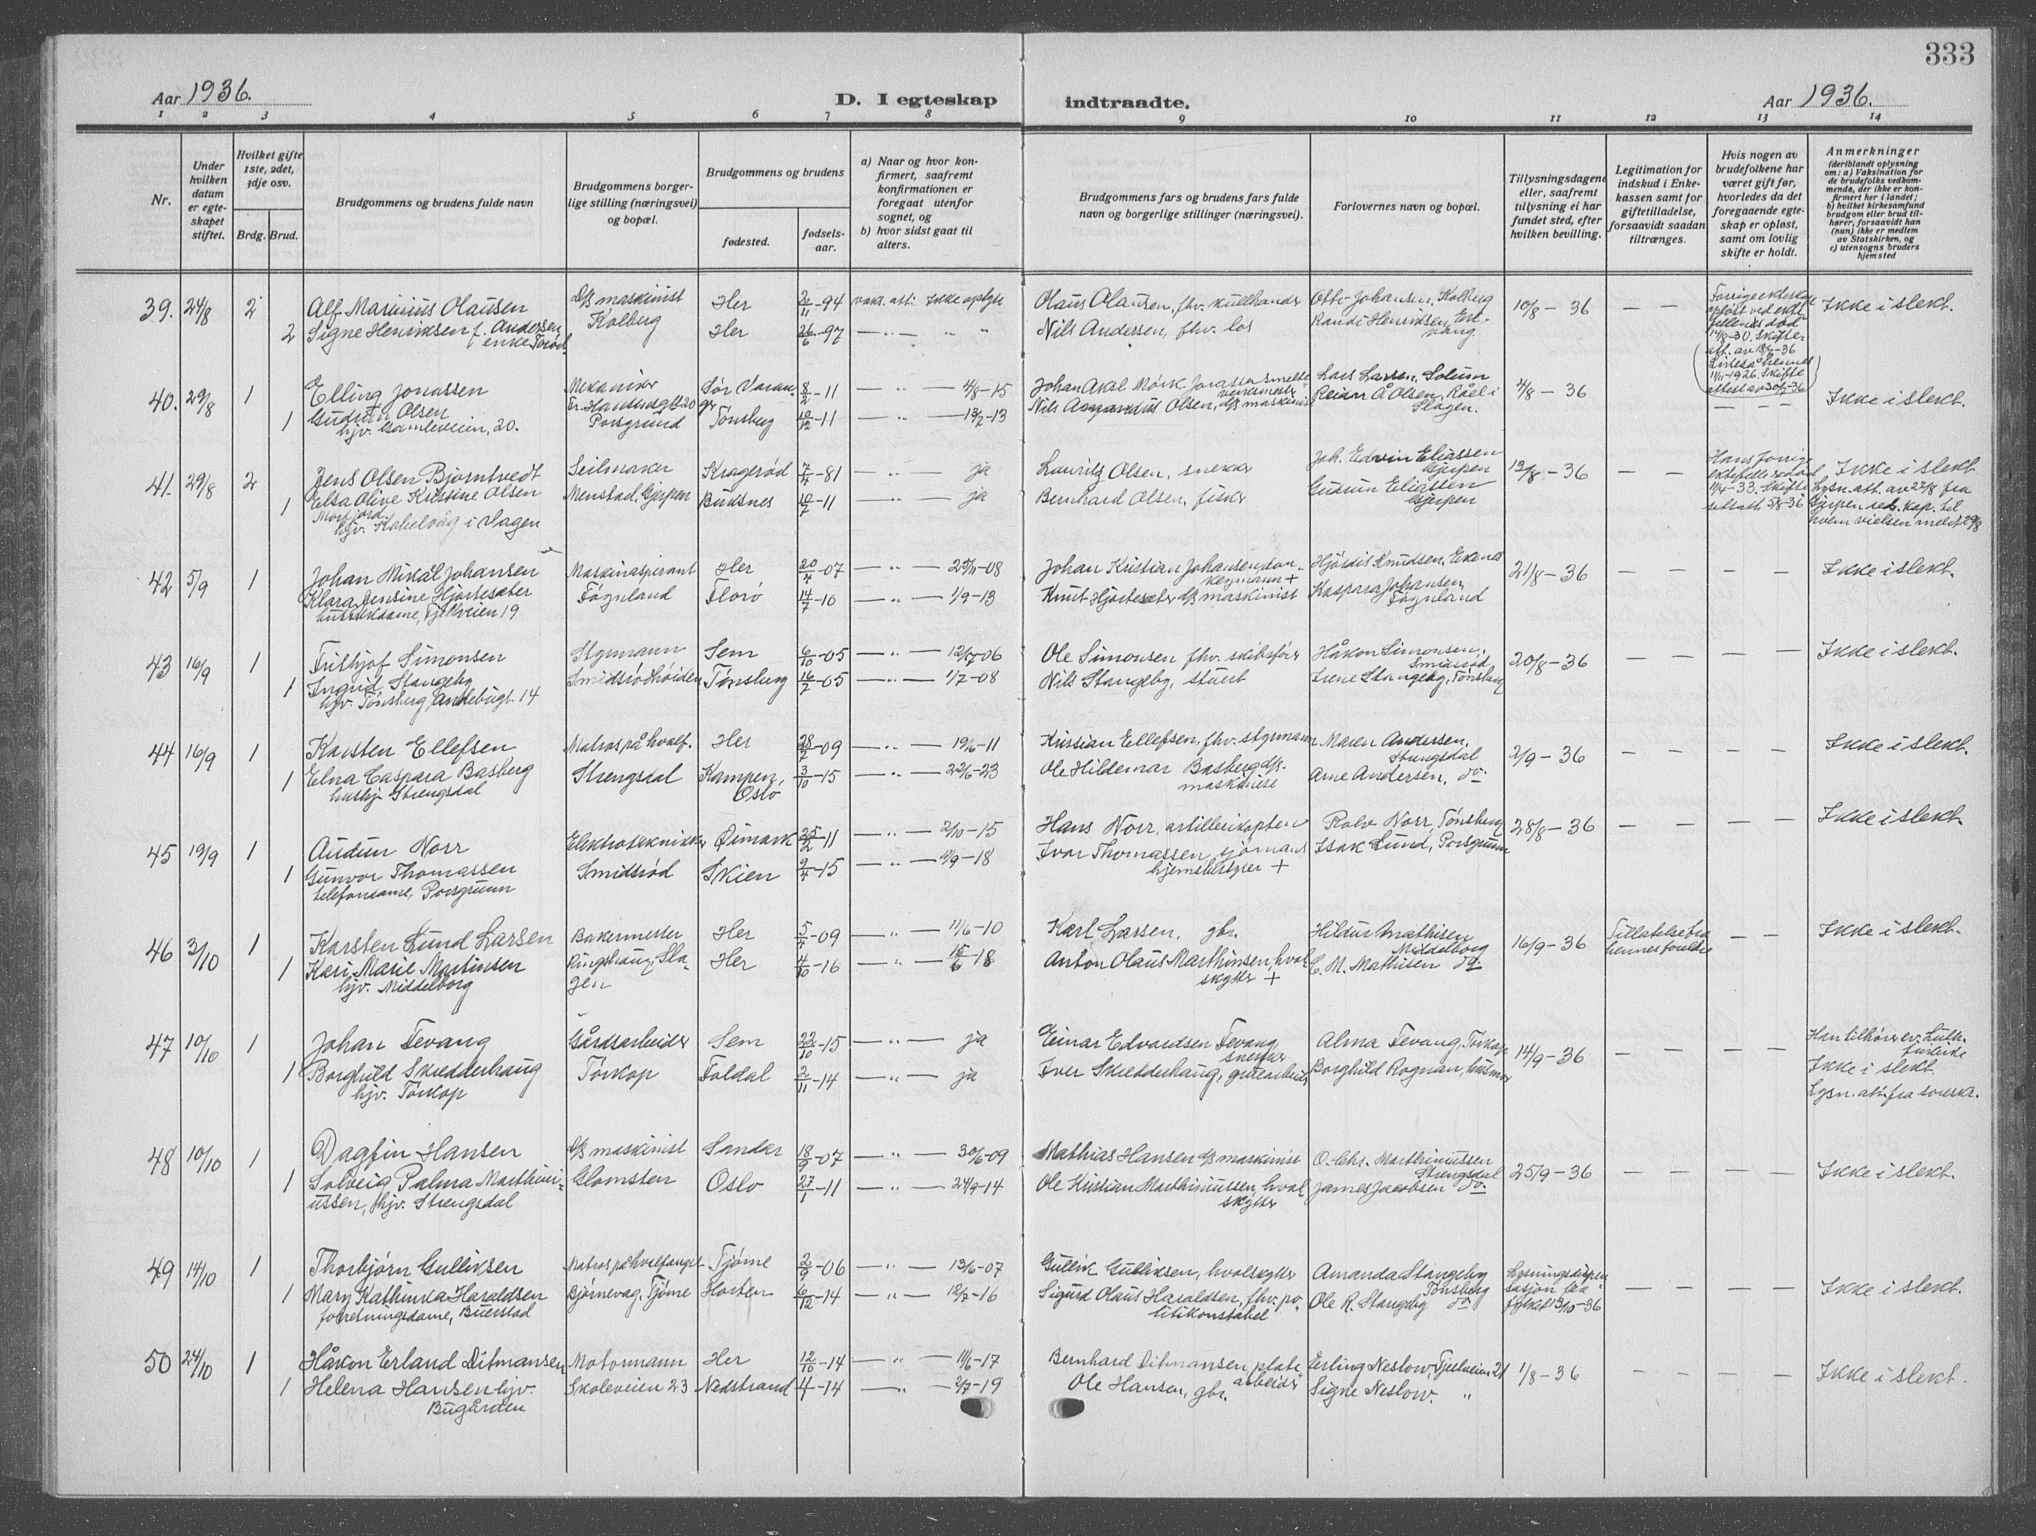 333
Aar 1936.
D. I egteskap indtraadte.
Aar 1936.
1 2 3 4 5 6 7 8 9 10 11 12 13 14
Nr.
Under hvilken datum er egteskapet stiftet.
Hvilket gifte 1ste, 2det, 3dje osv.
Brdg. Brud.
Brudgommens og brudens fulde navn
Brudgommens borgerlige stilling (næringsvei) og bopæl.
Brudgommens og brudens
fødested.
fødselsaar.
a) Naar og hvor konfirmert, saafremt konfirmationen er foregaat utenfor sognet, og
b) hvor sidst gaat til alters.
Brudgommens fars og brudens fars fulde navn og borgerlige stillinger (næringsvei).
Forlovernes navn og bopæl.
Tillysningsdagene eller, saafremt tillysning ei har fundet sted, efter hvilken bevilling.
Legitimation for indskud i Enkekassen samt for giftetilladelse, forsaavidt saadan tiltrænges.
Hvis nogen av brudefolkene har været gift før, hvorledes da det foregaaende egteskap er opløst, samt om lovlig skifte er holdt.
Anmerkninger
(deriblandt oplysning om: a) Vaksination for de brudefolks vedkommende, der ikke er konfirmert her i landet; b) hvilket kirkesamfund brudgom eller brud tilhører, forsaavidt han (hun) ikke er medlem av Statskirken, og c) utensogns bruders hjemsted
39. 24/8 2 Alf Marinius Olausen D/S maskinist Her 2/11-94 vaks. att: Ikke oplyst Olaus Olausen, fhv. kullhandler Otto Johansen, Kolberg 10/8-36 — — Ikke i slekt.
2 Signe Henriksen f. Andersen Kolberg Her 26/6-97 — " — " " Nils Andersen, fhv. los Randi Henriksen,
enke
40. 29/8 1 Elling Jonassen Mekaniker Sør Varanger 8/2-11 — " — 4/8-15 Johan Axel Mørk Jonassen smelteverksmester Lars Larsen, Solum 4/8-36 — — — Ikke i slekt.
1 Gudrun Olsen Porsgrund Tønsberg 10/12-11 — " — 13/2-13 Nils Olsen, D/S maskinist Reidar Å Olsen, Råel i Slagen.
hjv. Gamleveien, 20.
41. 29/8 2 Jens Olsen Bjørntvedt Seilmaker Kragerød 7/4-81 — " — ja Lauritz Olsen, snekker Joh. Edvin Eliassen Gjerpen 12/8-36 — — Hans forrige Ikke i slekt
1 Elsa Olive Kristine Olsen Menstad, Gjerpen Buksnes 10/7-11 — " — ja Bernhard Olsen, fisker Gudrun Eliassen Gjerpen 11/4-33. Skifte Lysn. att. av 27/8 fra
Morfjord hjv. Kabelvåg i Vågan Gjerpen res. kap. til hvem vielsen meldt 29/8
42 5/9 1 Johan Mikal Johansen Maskinaspirant Her 20/4-07 — " — 25/11-08 Johan Kristian Johansen, donkeymann + Hjørdis Knudsen, Ekenes 21/8-36 — — — Ikke i slekt.
Klara Jensine Hjortesæter Føgnland Florø 14/7-10 — " — 1/9-13 Knut Hjortesæter D/S maskinist Kaspara Johansen, Føgnland
43 16/9 1 Frithjof Simonsen Styrmann Sem 6/10-05 — " — 12/7-06 Ole Simonsen fhv. skibsfører Håkon Simonsen, Smidsrød 20/8-36 — — — Ikke i slekt.
1 Ingrid Stangeby Smidsrødhøiden Tønsberg 16/2-05 — " — 1/7-08 Nils Stangeby, stuert Irene Stangeby, Tønsberg
hjv. Tønsberg, Andebugt. 14
44 16/9 1 Karsten Ellefsen Matros på hvalf. Her 28/7-09 — " — 19/6-11 Kristian Ellefsen, fhv. styrmann Maren Andersen, Strengsdal 2/9-36 — — — Ikke i slekt.
1 Elna Caspara Basberg Strengsdal Kampen, Oslo 3/10-15 — " — 22/6-23 Ole Hildemar Basberg D/S. maskinist Arne Andersen, do.
hushj. Strengsdal
45 19/9 1 Audun Norr Elektrotekniker Øimark 25/2-11 — " — 2/10-15 Hans Norr, artillerikaptein Rolv Norr, Tønsberg 28/8-36 — — — Ikke i slekt.
1 Gunvor Thomassen Smidsrød Skien 9/4-15 — " — 11/9-18 Ivar Thomassen, sjømannshjembestyrer + Isak Lund, Porsgrunn
telefondame, Porsgrunn
46 3/10 1 Karsten Lund Larsen Bakermester Her 5/4-09 — " — 11/6-10 Karl Larsen, gbr. Hildur Mathisen Middelborg 16/9-36 Tillatelse fra hennes foreldre — — Ikke i slekt.
1 Kari Marie Martinsen Ringshaug, Slagen Her 4/10-16 — " — 15/6-18 Anton Olaus Marthinsen, hvalskytter + C. M. Mathisen do
hjv. Middelborg
47 10/10 1 Johan Tevang Gårdsarbeider Sem 22/10-15 — " — ja Einar Edvardsen Tevang, snekker Alma Tevang, Torkop 14/9-36 — — — Han tilhører ev. Luth. frikirke
1 Borghild Skredderhaug Torkop Foldal 2/11-14 — " — ja Iver Skredderhaug, grubearbeider Borghild Rognan, husmor Ikke i slekt.
hjv. Torkop Lysn. att. fra
48 10/10 1 Dagfin Hansen D/S maskinist Sandar 18/9-07 — " — 30/6-09 Mathias Hansen D/S maskinist O. Chr. Marthiniussen Strengsdal 25/9-36 — — — Ikke i slekt.
1 Solveig Palma Marthiniussen, hjv. Strengsdal Glomsten Oslo 27/1-11 — " — 24/9-14 Ole Kristian Marthiniussen, hvalskytter James Jacobsen do.
49 14/10 1 Thorbjørn Gulliksen Matros på hvalfangst Tjøme 2/9-06 — " — 13/6-07 Gullik Gulliksen, hvalskytter Amanda Stangeby Tønsberg Lysningsdispensasjon fra fylket 13/10-36 — — — Ikke i slekt.
1 Mary Kathinka Haraldsen Bjørnevåg, Tjøme Horten 6/12-14 — " — 12/7-16 Sigurd Olaus Haraldsen, fhv. politikonstabel Ole R. Stangeby do.
forretningsdame, Buerstad
50 24/10 1 Håkon Erland Ditmansen Motormann Her 12/10-14 — " — 11/6-17 Bernhard Ditmansen, platearbeider Erling Neslow, Tjelveien 21 1/8-36 — — — Ikke i slekt.
1 Helena Hansen hjv. Skoleveien 23 Nedstrand 4/1-14 — " — 2/7-19 Ole Hansen, gbr. Signe Neslow. "
Bugården